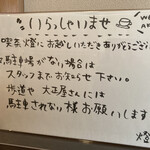 いらっしゃいませ
喫茶燈にお越しいただきありがとうござい
駐車場がない場合は
スタッフまでお知らせ下さい。
歩道や大正屋さんには
駐車されない様お願いします
燈